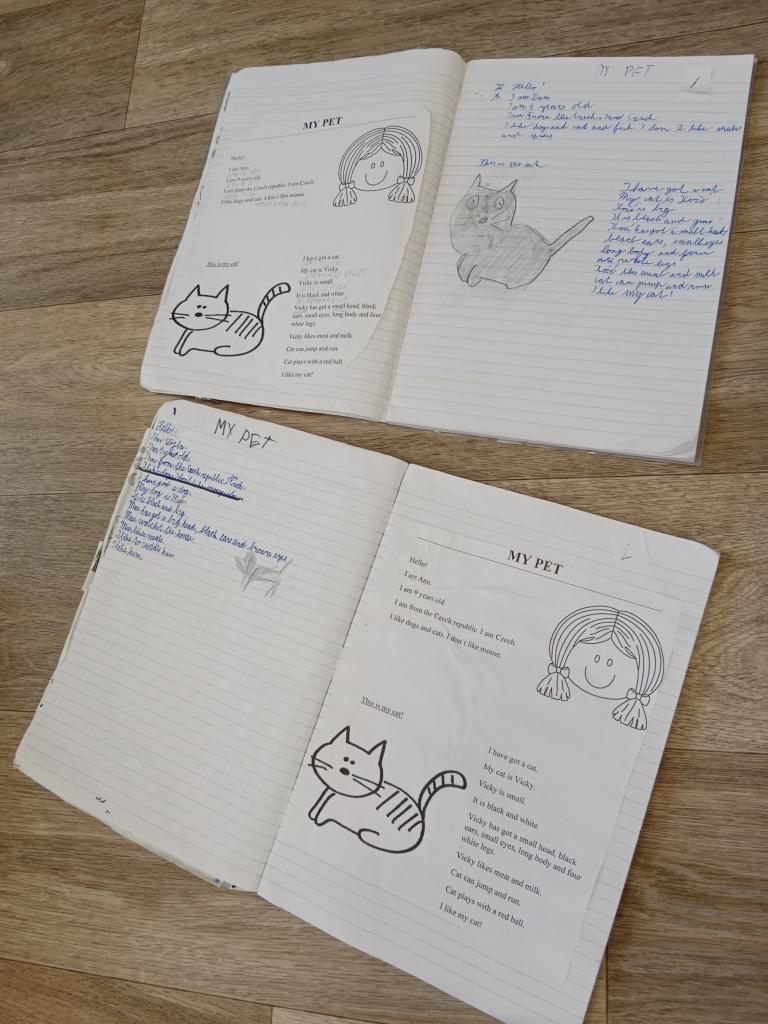 MY PET
Hello!
I am Ann.
I am 9 years old.
I am from the Czech republic. I am Czech.
I like dogs and cats. I don´t like mouse.
This is my cat!
I have got a cat.
My cat is Vicky.
Vicky is small.
It is black and white.
Vicky has got a small head, black
ears, small eyes, long body and four
white legs.
Vicky likes meat and milk.
Cat can jump and run.
Cat plays with a red ball.
I like my cat!
MY PET
Hello!
I am
I am 9 years old
I am From the Czech Czech
I like dogs and cat and fish I don't like snake
and
This is my cat
I have got a cat
My cat is
is big
It is black and
has got a small head
black ears, small eyes
long body and four
legs
likes meat and milk
cat can jump and run
I like My cat!
MY PET
Hello!
I am
I am old
I am from the Czech republic
I have got a dog.
My dog is Max
It is black and big
Max has got a big head, black ears and brown eyes
Max the house
Max likes
I like to him
I like him
MY PET
Hello!
I am Ann.
I am 9 years old.
I am from the Czech republic. I am Czech.
I like dogs and cats. I don´t like mouse.
This is my cat!
I have got a cat.
My cat is Vicky.
Vicky is small.
It is black and white.
Vicky has got a small head, black
ears, small eyes, long body and four
white legs.
Vicky likes meat and milk.
Cat can jump and run.
Cat plays with a red ball.
I like my cat!